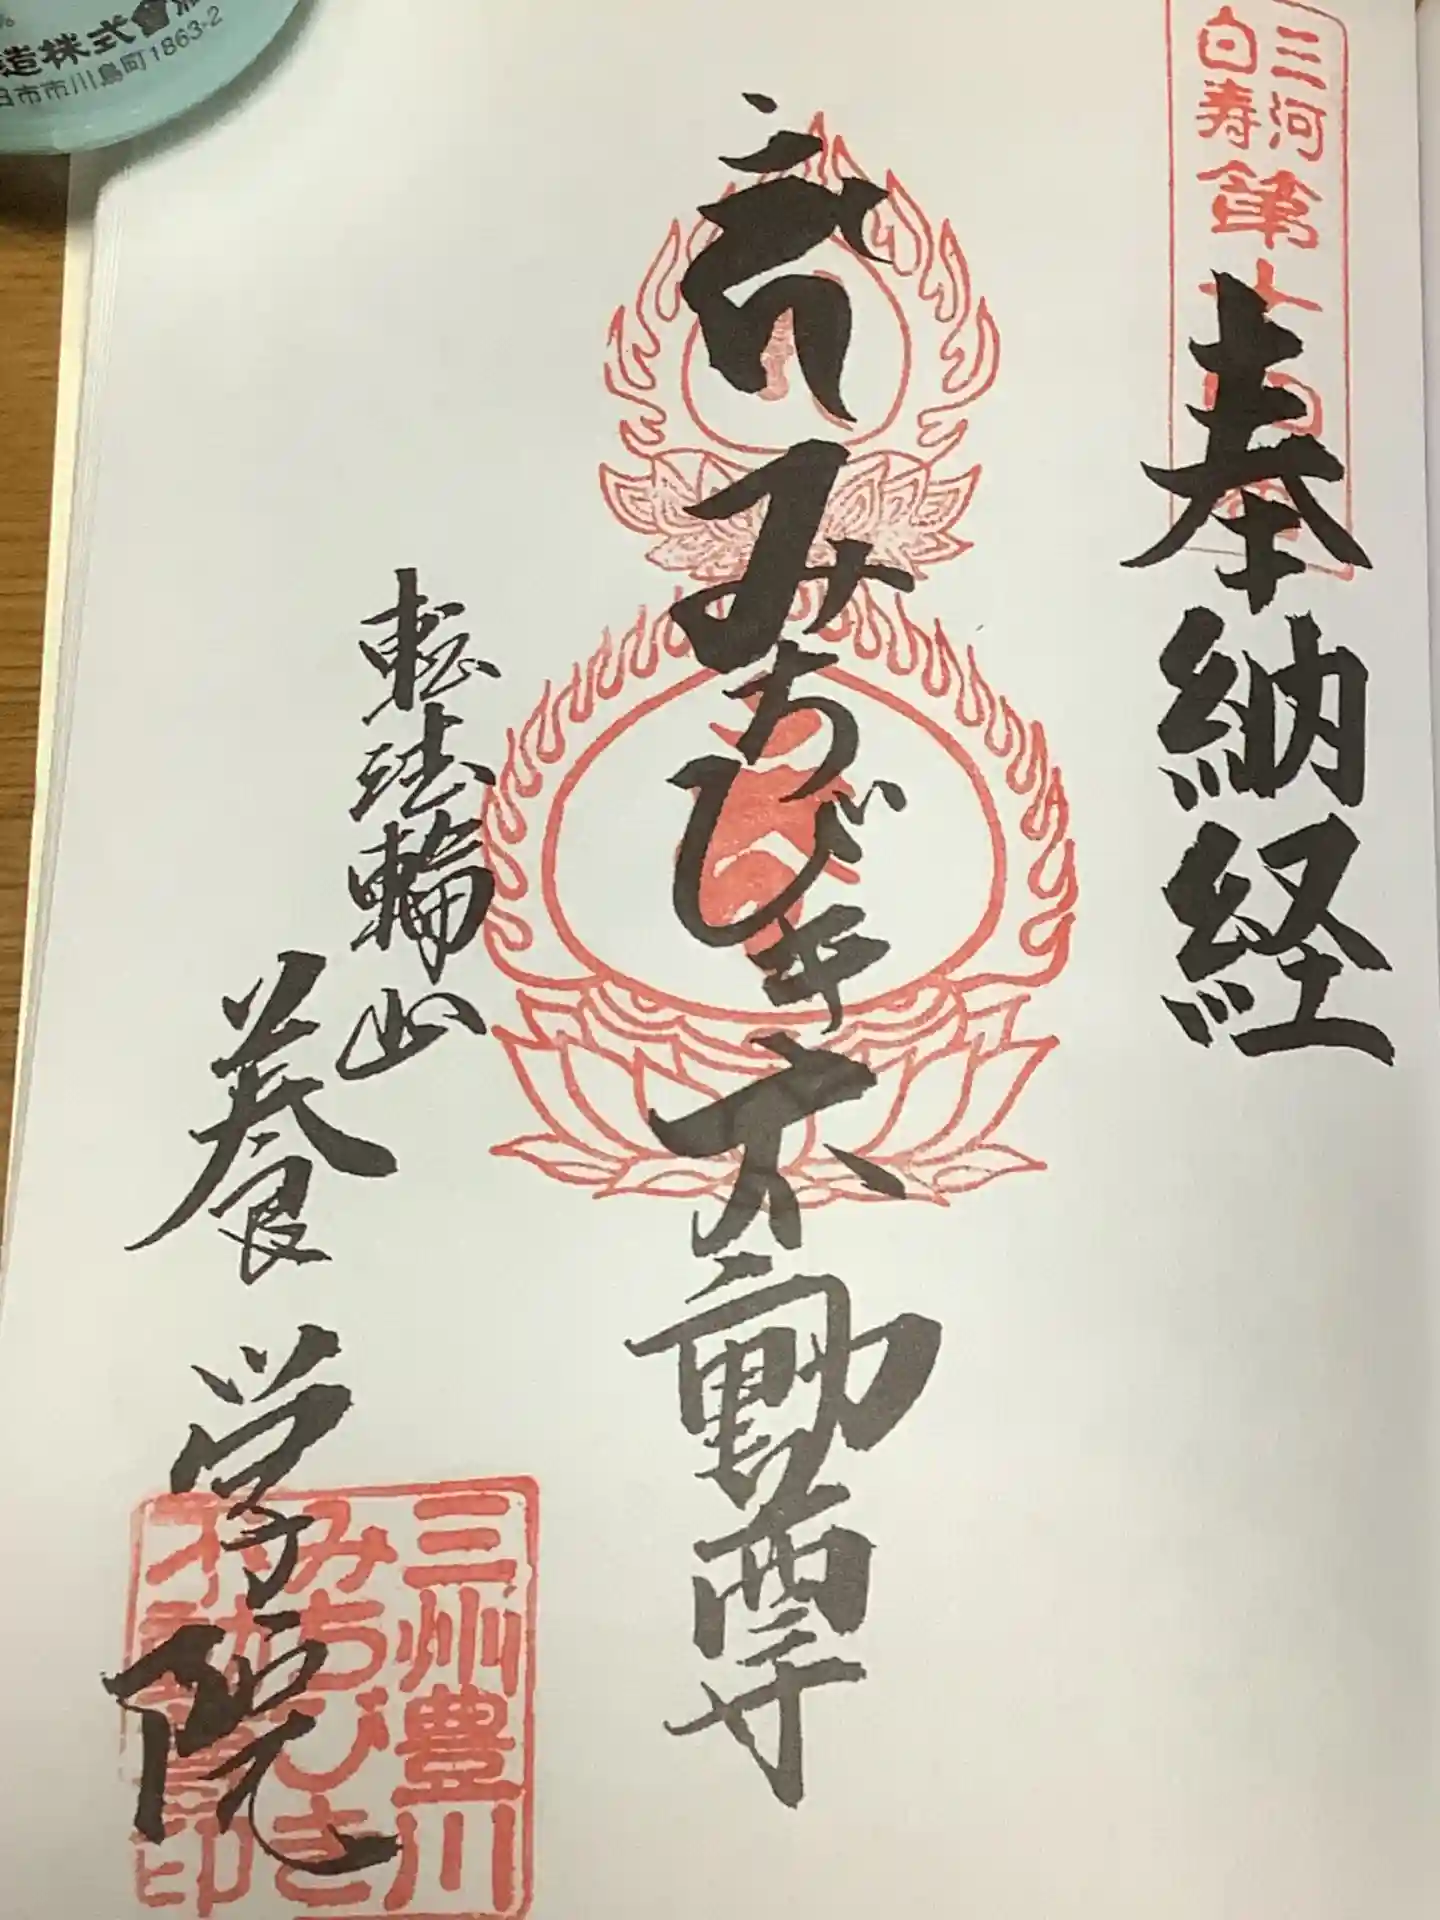 造株式會
日市市川島町1863-2
三河
白寿
第
奉納経
みちびき不動尊
転法輪山
養学院
三州豊川
みちびき
不動尊印